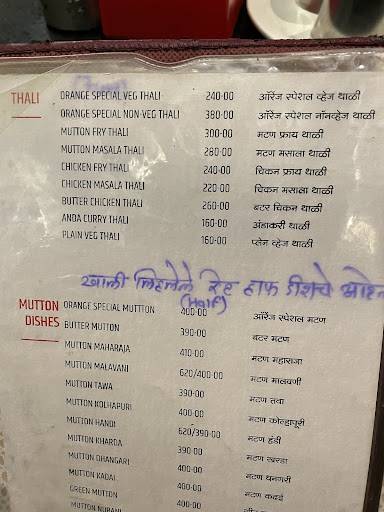 THALI ORANGE SPECIAL VEG THALI 240-00 ऑरेंज स्पेशल व्हेज थाळी
ORANGE SPECIAL NON-VEG THALI 380-00 ऑरेंज स्पेशल नॉनव्हेज थाळी
MUTTON FRY THALI 300-00 मटण फ्राय थाळी
MUTTON MASALA THALI 280-00 मटण मसाला थाळी
CHICKEN FRY THALI 240-00 चिकन फ्राय थाळी
CHICKEN MASALA THALI 220-00 चिकन मसाला थाळी
BUTTER CHICKEN THALI 260-00 बटर चिकन थाळी
ANDA CURRY THALI 160-00 अंडाकरी थाळी
PLAIN VEG THALI 160-00 प्लेन व्हेज थाळी
खाली लिहलेले रेट हाफ डीशचे आहेत
(Half)
MUTTON DISHES ORANGE SPECIAL MUTTTON 400-00 ऑरेंज स्पेशल मटण
BUTTER MUTTON 390-00 बटर मटण
MUTTON MAHARAJA 410-00 मटण महाराजा
MUTTON MALAVANI 620/400-00 मटण मालवणी
MUTTON TAWA 390-00 मटण तवा
MUTTON KOLHAPURI 400-00 मटण कोल्हापूरी
MUTTON HANDI 620/390-00 मटण हंडी
MUTTON KHARDA 390-00 मटण खरडा
MUTTON DHANGARI 400-00 मटण धनगरी
MUTTON KADAI 400-00 मटण कढई
GREEN MUTTON 400-00
MUTTON NURANI